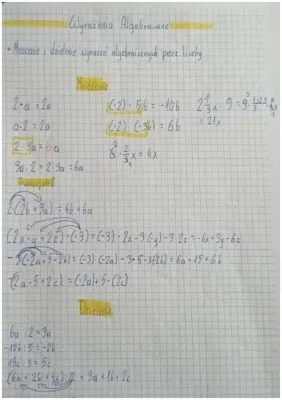 Wyrażenia Algebraiczne
• Mnożenie i dzielenie wyrażeń algebraicznych przez liczby
Mnożenie
2·a = 2a
a·2 = 2a
2·3a = 6a
3a·2 = 2·3a = 6a
(-2)·5b = -10b
(-2)·(-3b) = 6b
= 21x
2(2b+3a) = 4b+6a
(2x-y+2z)·(-3) = (-3)·2x-3·(-y)-3·2z = -6x+3y-6z
-(2a-5+2c) = (-2a)+5-(2c)
Dzielenie
6a:2 = 3a
-10b:5 = -2b
15c:3 = 5c
(6a+2b+4c):2 = 3a+1b+2c